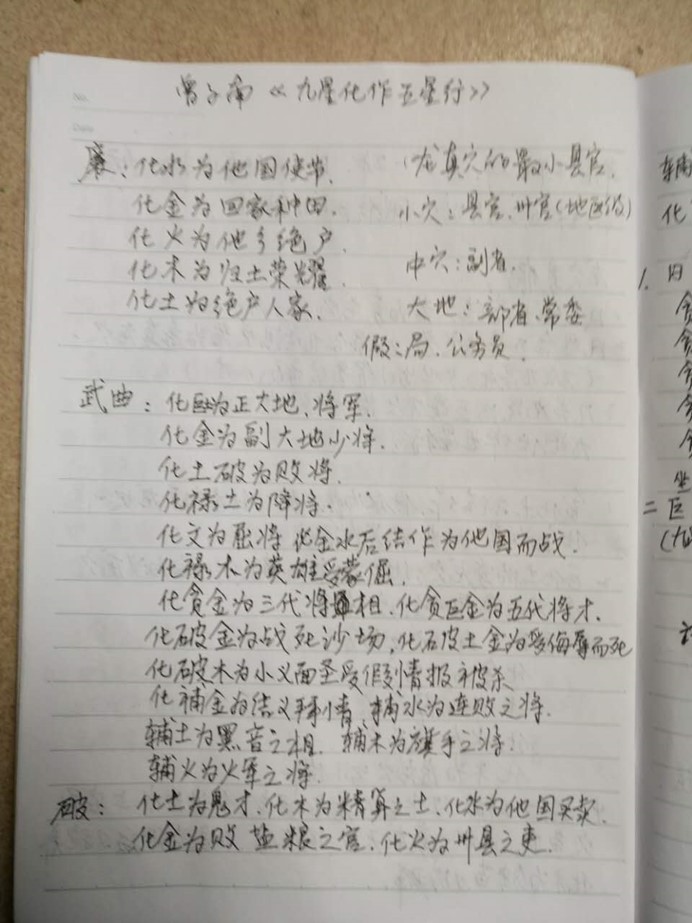 曾子南《九星化作五星行》
廉：化水为他国使节．（龙真穴的最小县官．
化金为回家种田． 小穴：县官．州官（地区级）
化火为他乡绝户．
化木为归土荣耀． 中穴：副省．
化土为绝户人家． 大地：部省．常委
假：局．公务员．
武曲：化巨为正大地、将军．
化金为副大地少将．
化土破为败将．
化禄土为降将．
化文为屈将 化金水后结作为他国而战．
化禄木为英雄受蒙倔．
化贪金为三代将相．化贪巨金为五代将才．
化破金为战死沙场，化破土金为受侮辱而死
化破木为小义面圣受假情报被杀
化補金为结义拜情 辅水为连败之将．
辅土为黑音之相．辅木为旗手之将．
辅火为火军之将．
破：化土为鬼才．化木为精算之士．化水为他国买卖．
化金为败 盐粮之官．化火为州县之吏．
辅
化
1. 日
坐
二巨